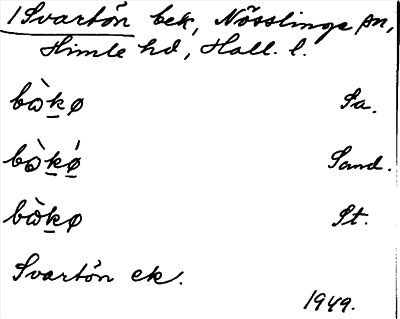 1 Svartön bek, Nösslinge sn,
Himle hd, Hall. l.
bὼkø Sa.
bὼkǿ Sand.
bὼkø St.
Svartön ek.
1949.